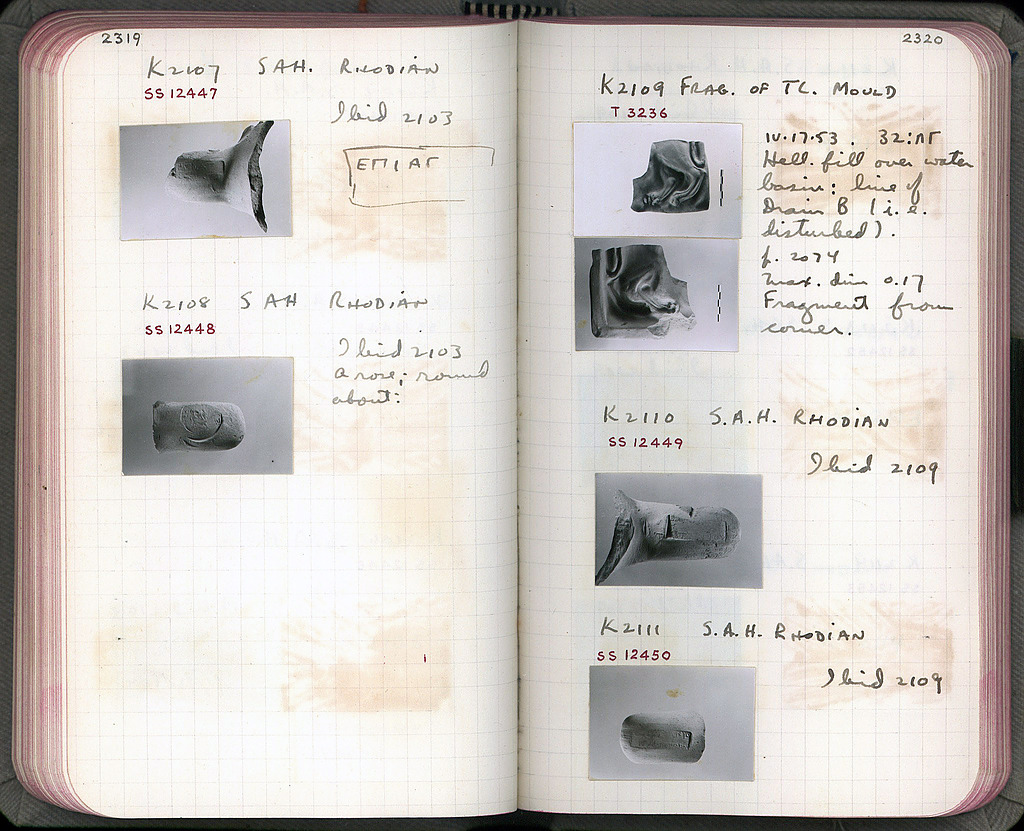 2319
K2107 SAH. RHODIAN
SS 12447
Ibid 2103
ΕΠΙ ΑΓ
K2108 SAH RHODIAN
SS 12448
Ibid 2103
a rose; round
about:
2320
K2109 FRAG. OF TC. MOULD
T 3236
IV·17·53 . 32:ΛΓ
Hell. fill over water
basin: line of
Drain B (i.e.
disturbed).
p. 2074
max. dim 0.17
Fragment from
corner.
K2110 S.A.H. RHODIAN
SS 12449
Ibid 2109
K2111 S.A.H. RHODIAN
SS 12450
Ibid 2109